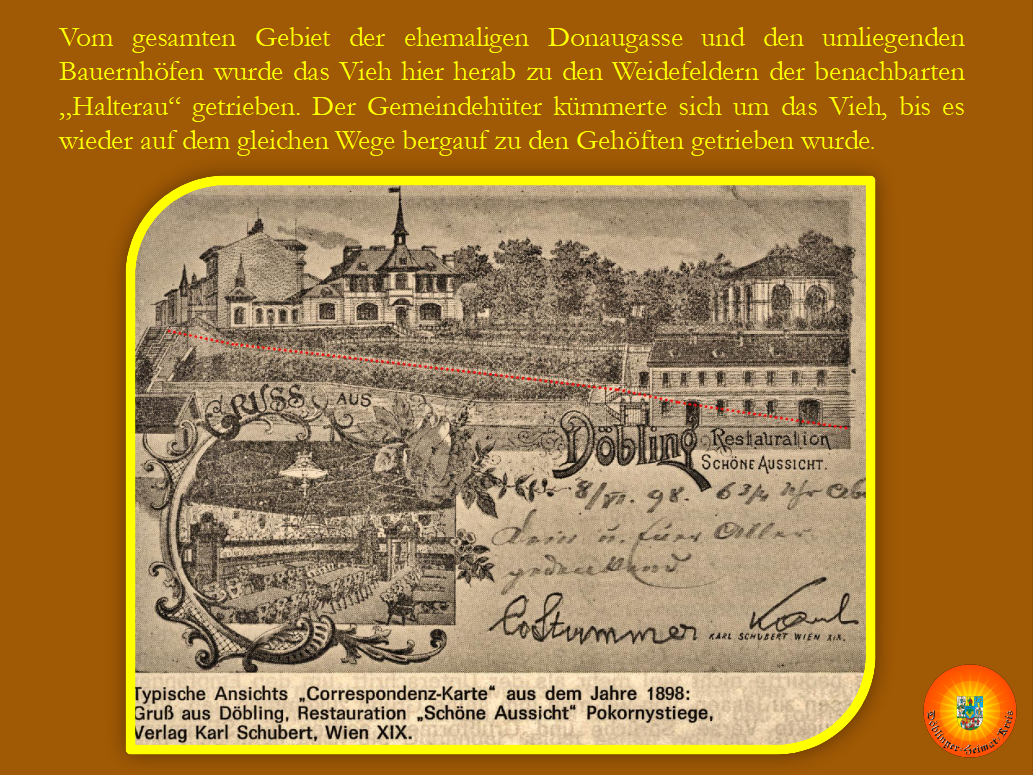 Vom gesamten Gebiet der ehemaligen Donaugasse und den umliegenden
Bauernhöfen wurde das Vieh hier herab zu den Weidefeldern der benachbarten
„Halterau“ getrieben. Der Gemeindehüter kümmerte sich um das Vieh, bis es
wieder auf dem gleichen Wege bergauf zu den Gehöften getrieben wurde.
GRUSS AUS
Döbling Restauration
SCHÖNE AUSSICHT.
8/VI. 98. 6 3/4 Uhr
KARL SCHUBERT WIEN XIX.
Typische Ansichts „Correspondenz-Karte“ aus dem Jahre 1898:
Gruß aus Döbling, Restauration „Schöne Aussicht“ Pokornystiege,
Verlag Karl Schubert, Wien XIX.
Döblinger-Heimat-Kreis